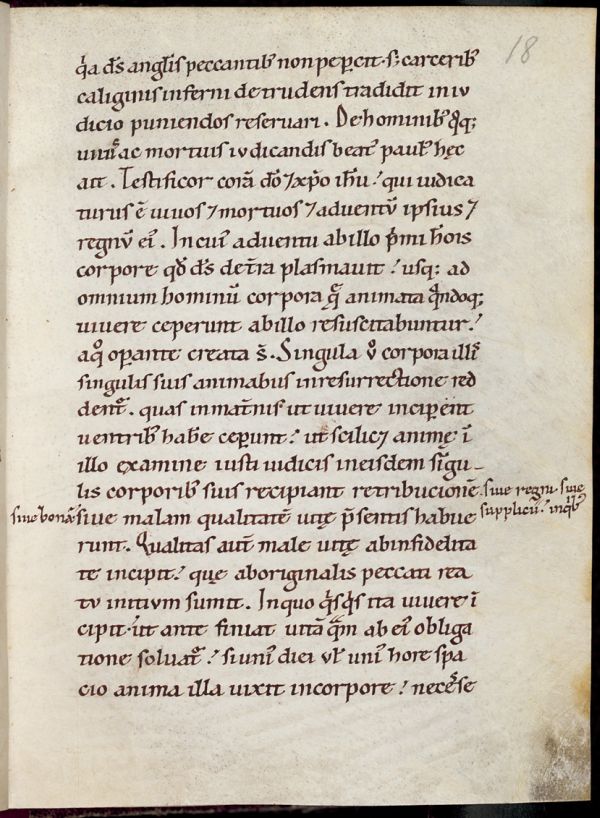 18
q̇a dſ anglis peccantib; non peꝑcit. s; carcerib;
caliginis inferni detrudens tradidit in iu
dicio puniendos reservari. De hominib; q̊q;
uiuis ac mortuis iudicandis beat᷒ paul᷒ hęc
ait. Testificor corā dō ⁊ xp̄o ihū! qui iudica
turus ē uiuos ⁊ mortuos ⁊ adventū ipsius ⁊
regnū ei᷒. In cui᷒ adventu ab illo p̄mi hōis
corpore qđ dſ de tr̄a plasmauit! usq; ad
omnium hominū corpora quę animata qn̄doq;
uiuere ceperunt ab illo resuscitabuntur!
a q̊ oꝑante creata s̄. Singula ů corpora illi᷒
singulis suis animabus in resurrectione red
dent᷒. quas in mat̄nis ut uiuere inciꝑent
ventrib; hab̄e ceꝑunt! ut scilic; animę ī
illo examine iusti iudicis in eisdem singu-
lis corporib; suis recipiant retribucionē siue regni siue
siue bonā siue malam qualitatē uitę p̄sentis habue supplicii! in q̇b;
runt. Qualitas aut̄ male uitę ab infidelita
te incipit! quę ab originalis peccati rea
tu initium sumit. In quo q̇sq̇s ita uiuere ī
cipit ut ante finiat uitā quā̄ ab ei᷒ obliga
tione soluat᷒! si uni᷒ diei ul̄ uni᷒ hore spa
cio anima illa uixit in corpore! necesse